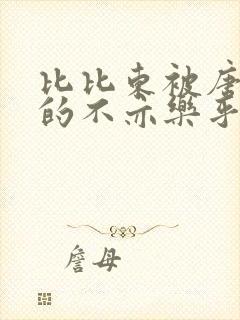 比比东被唐
的不亦乐乎
詹母